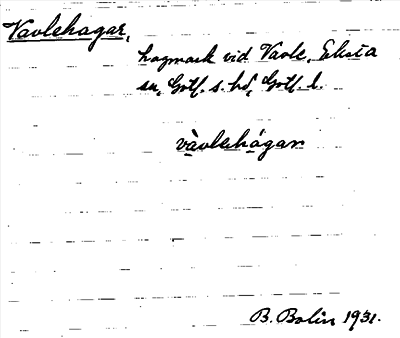 Vavlehagar,
hagmark vid Vavle, Eksta
sn, Gotl. s. hd, Gotl. l.
vàvlehágar
B. Bolin 1931.